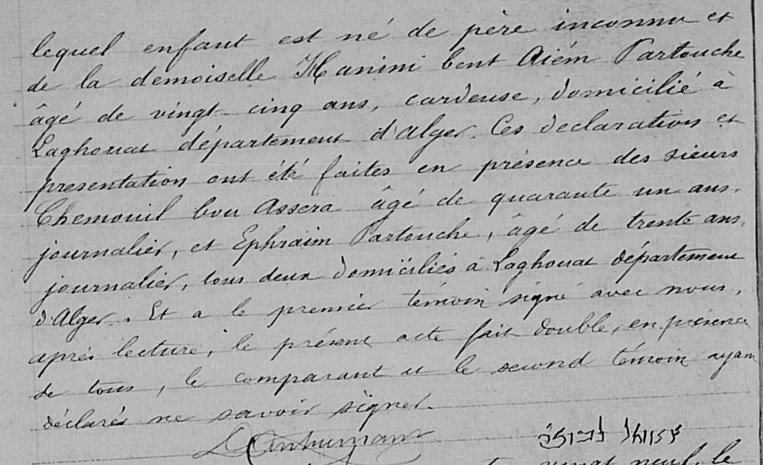 lequel enfant est né de père inconnu et
de la demoiselle Hanini bent Aïem Partouche
âgé de vingt cinq ans, cardeuse, domicilié à
Laghouat département d'Alger. Ces declaration et
presentation ont été faites en présence des sieurs
Chemouil bou Assera âgé de quarante un ans,
journalier, et Ephraïm Partouche, âgé de trente ans,
journalier, tous deux domiciliés à Laghouat département
d'Alger. Et a le premier témoin signé avec nous,
après lecture, le présent acte fait double, en présence
de tous, le comparant et le second témoin ayant
déclarés ne savoir signer.
vingt neuf, le